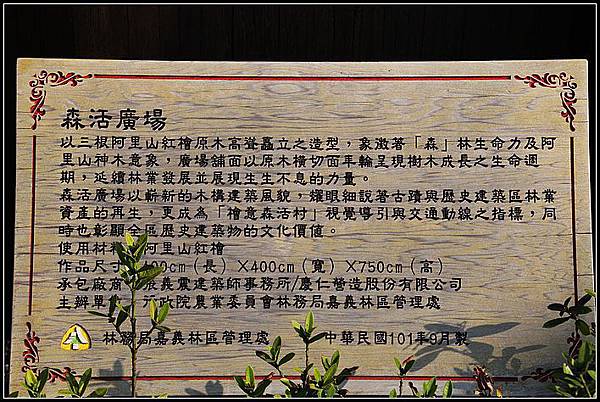 森活廣場
以三根阿里山紅檜原木高聳矗立之造型，象徵著「森」林生命力及阿
里山神木意象，廣場舖面以原木橫切面年輪呈現樹木成長之生命週
期，延續林業發展並展現生生不息的力量。
森活廣場以嶄新的木構建築風貌，耀眼細說著古蹟與歷史建築區林業
資產的再生，更成為「檜意森活村」視覺導引與交通動線之指標，同
時也彰顯全區歷史建築物的文化價值。
使用材 阿里山紅檜
作品尺寸 00cm（長）×400cm（寬）×750cm（高）
承包廠商 展義震建築師事務所/慶仁營造股份有限公司
主辦單 行政院農業委員會林務局嘉義林區管理處
林務局嘉義林區管理處 中華民國101年9月製